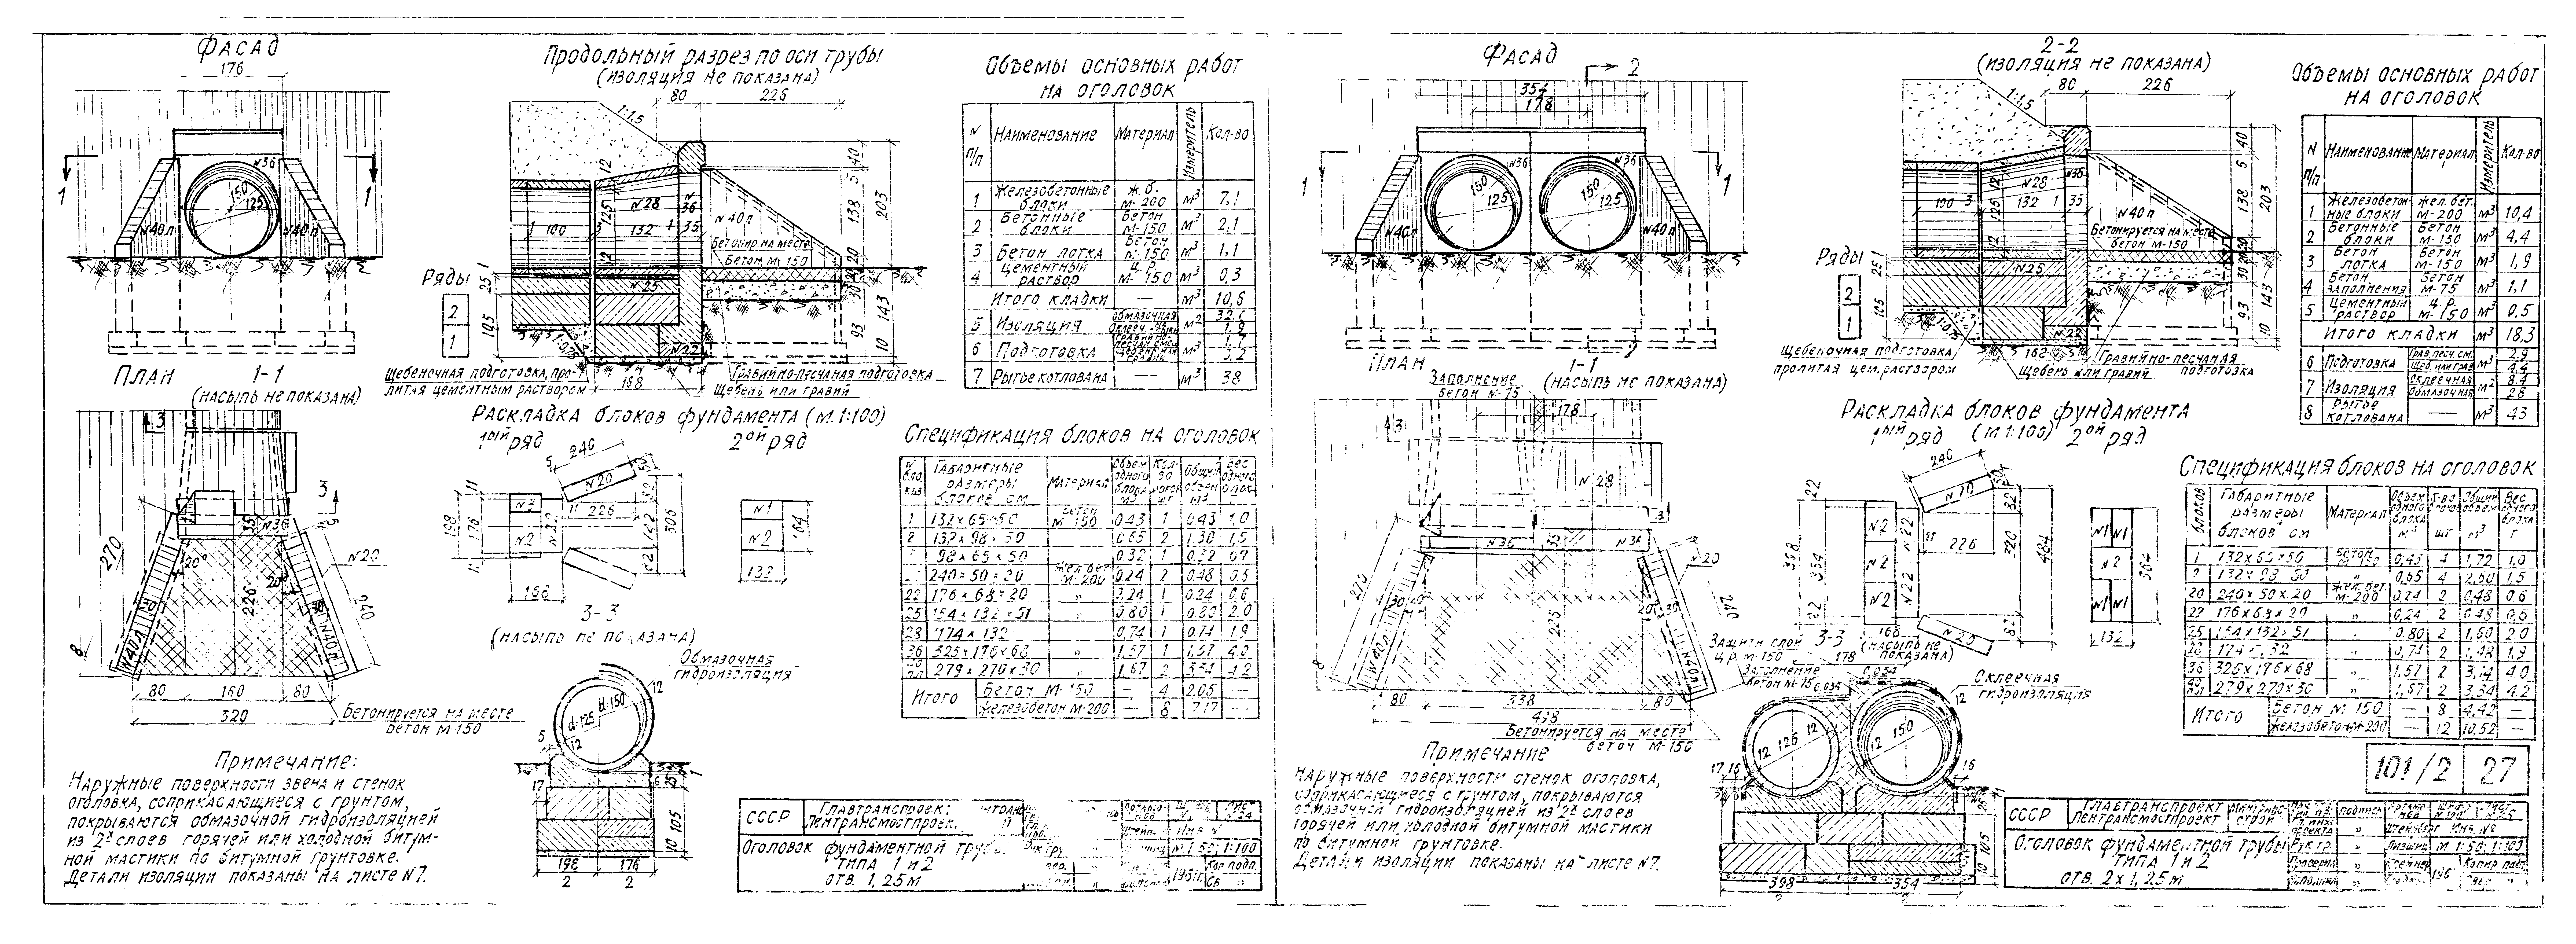 ФАСАД
176
N36
150
125
N40л
N40п
1
1
ПЛАН
1-1
(НАСЫПЬ НЕ ПОКАЗАНА)
3
3
N36
35
5
N20
270
20
20
226
30
30
240
N40л
N40п
8
80
160
80
320
Бетонируется на месте
бетон М-150
Примечание:
Наружные поверхности звена и стенок
оголовка, соприкасающиеся с грунтом,
покрываются обмазочной гидроизоляцией
из 2х слоев горячей или холодной битум-
ной мастики по битумной грунтовке.
Детали изоляции показаны на листе N7.
Продольный разрез по оси трубы
(изоляция не показана)
80
226
1:1,5
12
40
5
125
N28
N36
138
203
1
100
3
132
1
35
N40п
Бетонир. на месте
бетон М-150
12
20
Ряды
25
N25
30
143
2
1
105
93
10
1:0,75
N22
168
Щебеночная подготовка, про-
литая цементным раствором
Гравийно-песчаная подготовка
Щебень или гравий
Раскладка блоков фундамента (м.1:100)
1ый ряд
2ой ряд
240
5
N20
11
226
198
176
N3
N2
N22
142
306
166
N1
N2
164
132
3-3
(насыпь не показана)
Обмазочная
гидроизоляция
12
d-125
d-150
12
5
17
25
105
10
198
2
176
2
Объемы основных работ
на оголовок
N п/п Наименование Материал Измеритель Кол-во
1 Железобетонные блоки Ж.б. М-200 м³ 7,1
2 Бетонные блоки Бетон М-150 м³ 2,1
3 Бетон лотка Бетон М-150 м³ 1,1
4 Цементный раствор ц.р. М-150 м³ 0,3
Итого кладки — м³ 10,6
5 Изоляция обмазочная м²
6 Подготовка м³
7 Рытье котлована — м³ 38
Спецификация блоков на оголовок
Габаритные размеры блоков см Материал Объем одного блока м³ Общий объем м³ Вес одного блока
1 132×65×50 Бетон М-150 0,43 1 0,43 1,0
2 132×98×50 0,65 2 1,30 1,5
98×65×50 0,32 1 0,32 0,7
240×50×20 Жел.бет М-200 0,24 2 0,48 0,6
22 176×68×20 „ 0,24 1 0,24 0,6
25 154×132×51 „ 0,80 1 0,80 2.0
28 174×132 „ 0,74 1 0,74 1,9
36 326×176×68 „ 1,57 1 1,57 4.0
279×270×30 „ 1,67 2 3,34 4.2
Итого Бетон М-150 — 4 2.05 —
Железобетон М-200 — 8 7.17 —
СССР
Главтранспроект
Лентрансмостпроект
Оголовок фундаментной трубы
типа 1 и 2
отв. 1,25м
ФАСАД
2
354
178
N36
N36
150
125
150
125
N40л
N40п
1
1
ПЛАН
1-1
(насыпь не показана)
Заполнение
бетон М-75
178
3
N28
3
N36
35
N36
N20
270
30
20
226
20
30
240
N40л
N40п
8
80
338
80
498
Бетонируется на месте
бетон М-150
Примечание
Наружные поверхности стенок оголовка,
соприкасающиеся с грунтом, покрываются
обмазочной гидроизоляцией из 2х слоев
горячей или холодной битумной мастики
по битумной грунтовке.
Детали изоляции показаны на листе N7.
2-2
(изоляция не показана)
80
226
1:1,5
40
5
12
N28
N36
138
203
100
3
125
132
1
35
N40п
Бетонируется на месте
бетон М-150
12
Ряды
25
N25
30
143
2
1
105
93
10
N22
168
Щебеночная подготовка
пролитая цем. раствором
Гравийно-песчаная
подготовка
Щебень или гравий
Раскладка блоков фундамента
1ый ряд
(м 1:100)
2ой ряд
240
50
N20
22
82
N2
N22
11
226
398
354
N2
320
484
22
N2
N22
N20
82
168
N1
N1
N2
N1
N1
364
132
3-3
(насыпь не
показана)
Защитн слой
ц.р. М-150
178
Заполнение
Оклеечная
гидроизоляция
12
12
125
12
12
150
17
16
16
25
105
10
398
354
2
Объемы основных работ
на оголовок
N п/п Наименование Материал Измеритель Кол-во
1 Железобетон-ные блоки Жел. бет. М-200 м³ 10,4
2 Бетонные блоки Бетон М-150 м³ 4,4
3 Бетон лотка Бетон М-150 м³ 1,9
4 Бетон заполнения Бетон М-75 м³ 1,1
5 Цементный раствор Ц.р. М-150 м³ 0.5
Итого кладки м³ 18,3
6 Подготовка Грав.песч.см. м³ 2,9
Щеб. или грав. 4.4
7 Изоляция оклеечная м² 8.4
обмазочная 28
8 Рытье котлована — м³ 43
Спецификация блоков на оголовок
блоков Габаритные размеры блоков см Материал Объем одного блока м³ шт Общий объем м³ Вес одного блока т
1 132×65×50 Бетон М-150 0,43 4 1,72 1.0
2 132×98×50 „ 0,65 4 2,60 1,5
20 240×50×20 Жел.бет М-200 0,24 2 0,48 0,6
22 176×68×20 „ 0,24 2 0,48 0,6
25 154×132×51 „ 0.80 2 1,60 2.0
174×132 „ 0,74 2 1,48 1,9
36 326×176×68 „ 1,57 2 3,14 4.0
279×270×30 „ 2 3.34 4.2
Итого Бетон М 150 — 8 4,42 —
Железобетон М-200 — 12 10,52 —
101/2
27
СССР
Главтранспроект
Лентрансмостпроект
Минтрансстрой
Оголовок фундаментной трубы
типа 1 и 2
отв. 2×1,25м